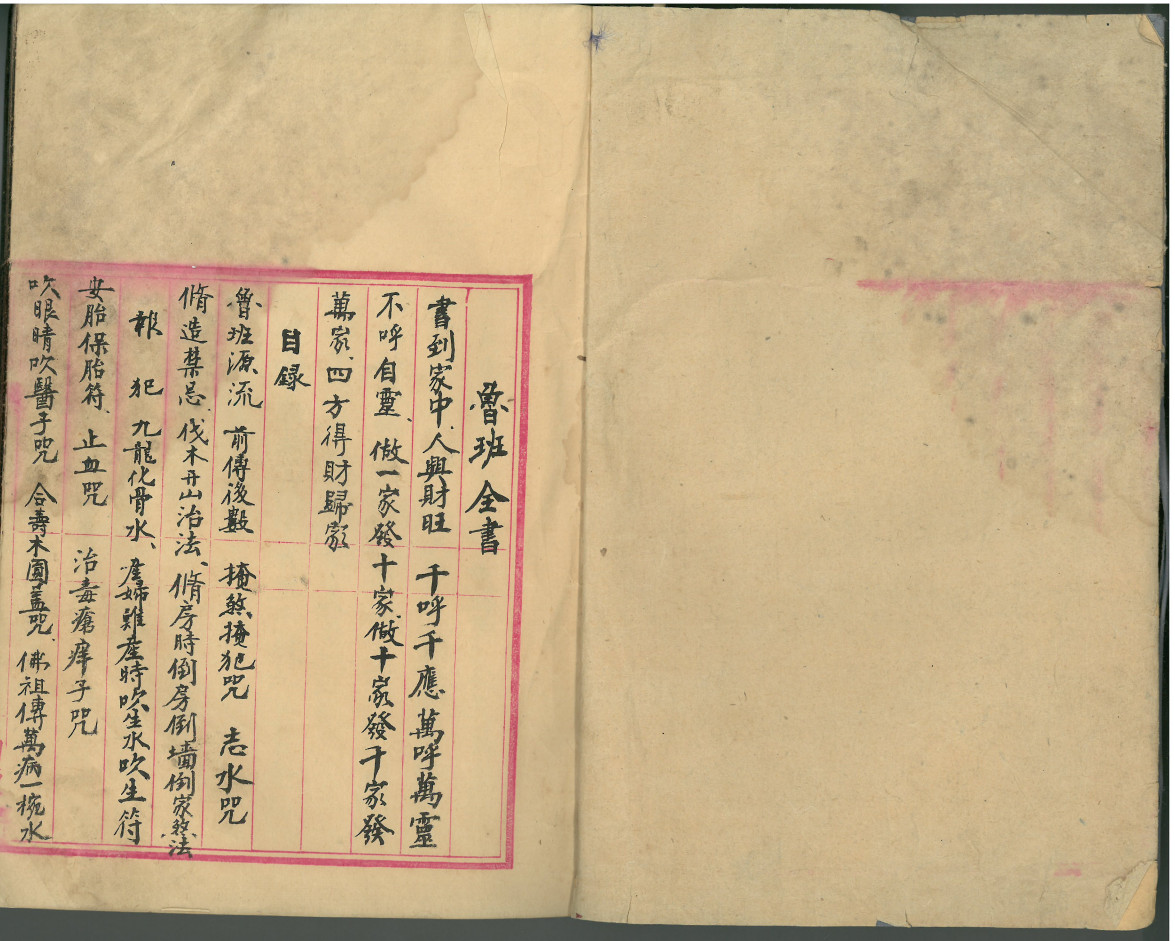 魯班全書
書到家中、人興財旺 千呼千應萬呼萬靈
不呼自靈、做一家發十家、做十家發千家發
萬家、四方得財歸家
目録
魯班源流 前傅後數 掩煞掩犯咒 志水咒
脩造禁忌、伐木开山治法、脩房時倒房倒墙倒家煞法
報犯 九龍化骨水、產婦難產時吹生水吹生符
安胎保胎符、止血咒 治毒瘡痒子咒
吹眼睛吹醫子咒 合壽木圓蓋咒、佛祖傳萬病一椀水